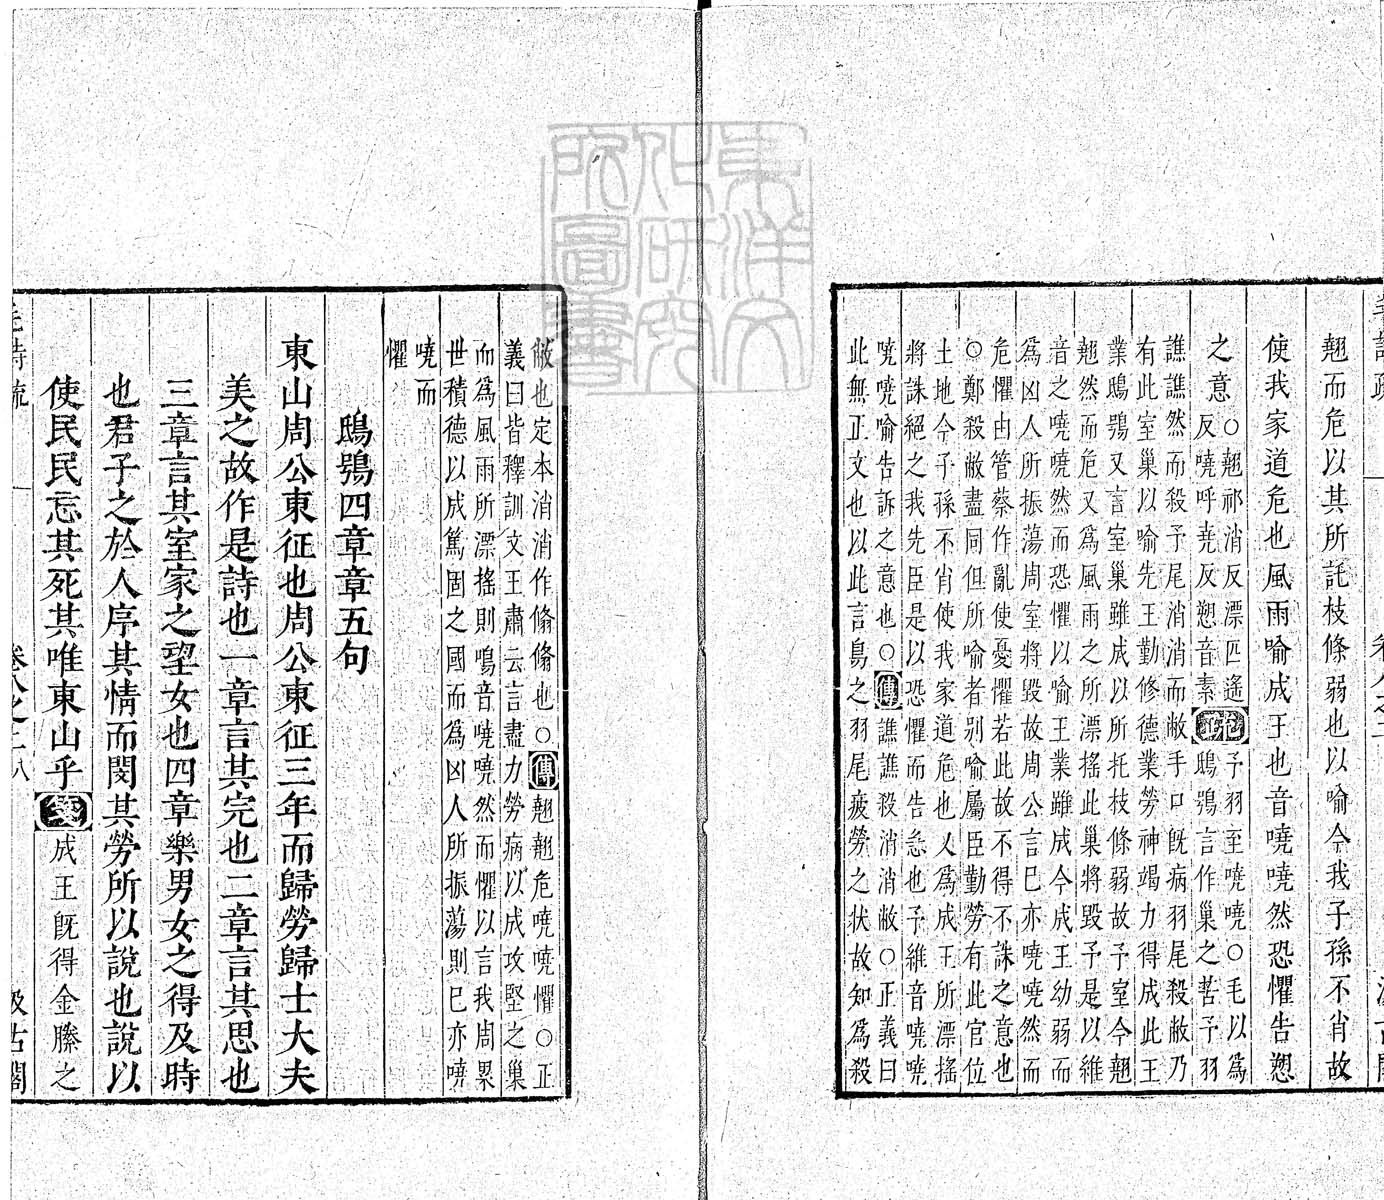 翹而危以其所託枝條弱也以喻今我子孫不肖故
使我家道危也風雨喻成王也音嘵嘵然恐懼告愬
之意
○翹祁消反漂匹遙
反嘵呼堯反愬音素
疏
予羽至嘵嘵○毛以爲
鴟鴞言作巢之苦予羽
譙譙然而殺予尾消消而敝手口旣病羽尾殺敝乃
有此室巢以喻先王勤修德業勞神竭力得成此王
業鴟鴞又言室巢雖成以所托枝條弱故予室今翹
翹然而危又爲風雨之所漂搖此巢將毀予是以維
音之嘵嘵然而恐懼以喻王業雖成今成王幼弱而
爲凶人所振蕩周室將毀故周公言已亦嘵嘵然而
危懼由管蔡作亂使憂懼若此故不得不誅之意也
○鄭殺敝盡同但所喻者別喻屬臣勤勞有此官位
土地今子孫不肖使我家道危也乂爲成王所漂搖
將誅絕之我先臣是以恐懼而告急也予維音嘵
嘵嘵喻告訴之意也○傳譙譙殺消消敝○正義曰
此無正文也以此言鳥之羽尾疲勞之狀故知爲殺
敝也定本消消作翛翛也○傳翹翹危嘵嘵懼○正
義曰皆釋訓文王肅云言盡力勞病以成攻堅之巢
而爲風雨所漂搖則鳴音嘵嘵然而懼以言我周累
世積德以成篤固之國而爲凶人所振蕩則已亦嘵
嘵而
懼
鴟鴞四章章五句
東山周公東征也周公東征三年而歸勞歸士大夫
美之故作是詩也一章言其完也二章言其思也
三章言其室家之望女也四章樂男女之得及時
也君子之於人序其情而閔其勞所以說也說以
使民民忘其死其唯東山乎箋成王旣得金縢之
毛詩疏 卷八之二 八 汲古閣
東洋文化研究所圖書